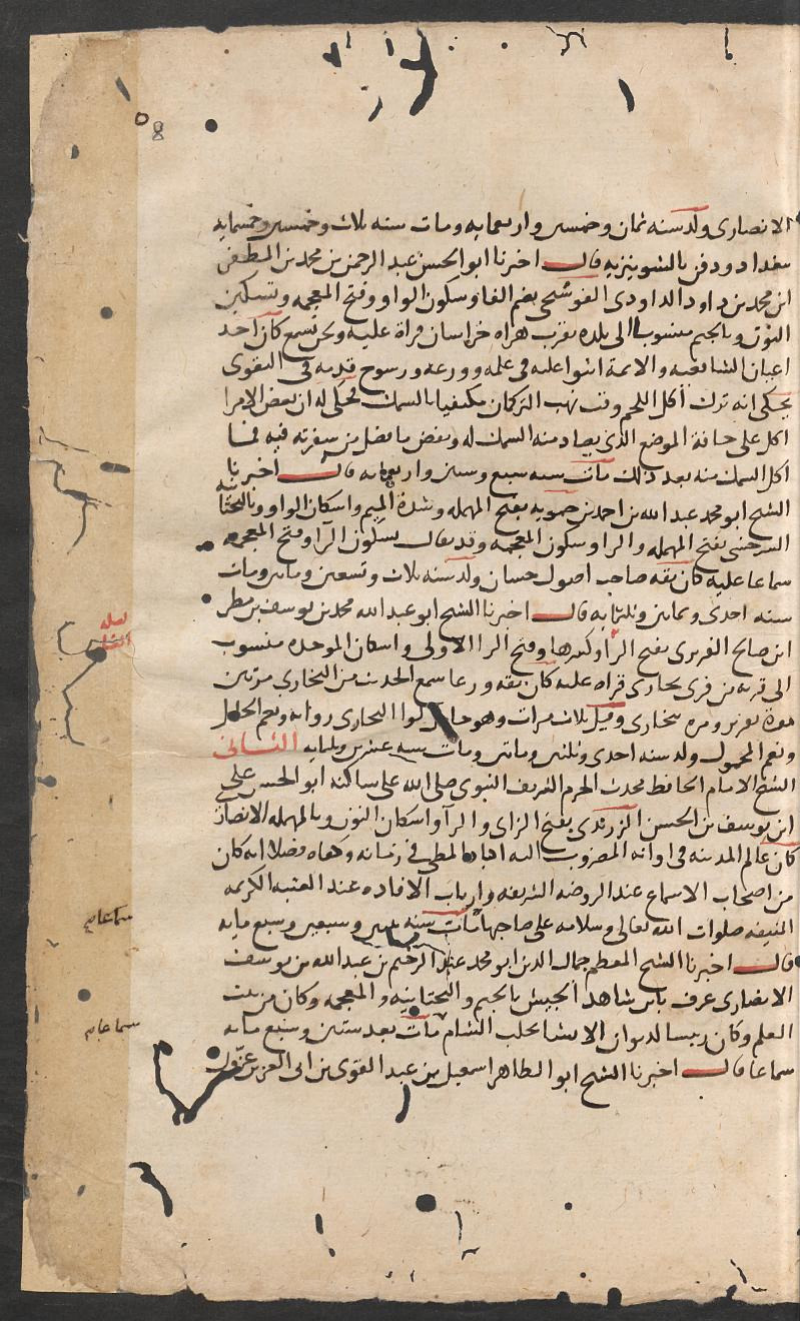 الانصارى ولد سنه ثمان وخمسين واربعمايه ومات سنه ثلاث وخمسين وخمسمايه
ببغداد ودفن بالشونيزيه قال اخبرنا ابو الحسن عبد الرحمن بن محمد بن المظفر
ابن محمد بن داود الداودى الفوشنجى بضم الفا وسكون الواو وفتح المعجمه وتسكين
النون وبالجيم منسوب الى بلده بقرب هراه خراسان قراة عليه ونحن نسمع كان احد
اعيان الشافعيه والايمة اثنوا عليه فى علمه وورعه ورسوخ قدمه فى التقوى
يحكى انه ترك اكل اللحم وقت نهب التركمان مكتفيا بالسمك فحكى له ان بعض الامرا
اكل على حافة الموضع الذى يصاد منه السمك له ونفض ما فضل من سفرته فيه فما
اكل السمك منه بعد ذلك مات سنه سبع وستين واربعمايه قال اخبرنا
الشيخ ابو محمد عبد الله بن احمد بن حمويه بفتح المهمله وشدة الميم واسكان الواو وبالتحتانيه
السرخسى بفتح المهمله والرا وسكون المعجمه وقد يقال بسكون الرا وفتح المعجمه
سماعا عليه كان ثقه صاحب اصول حسان ولد سنه ثلاث وتسعين ومايتين ومات
سنه احدى وثمانين وثلثمايه قال اخبرنا الشيخ ابو عبد الله محمد بن يوسف بن مطر
ابن صالح الفربرى بفتح الرا وكسرها وفتح الرا الاولى واسكان الموحده منسوب
الى قريه من قرى بخارى قراه عليه كان ثقه ورعا سمع الحديث من البخارى مرتين
مرة بفربر ومره ببخارى وقيل ثلاث مرات وهو البخارى روايه ونعم الحامل
ونعم المحمول ولد سنه احدى وثلثين ومايتين ومات سنه عشرين وثلثمايه الثانى
الشيخ الامام الحافظ محدث الحرم الشريف النبوى صلى الله على ساكنه ابو الحسن على
ابن يوسف بن الحسن الزرندى بفتح الزاى والرا واسكان النون وبالمهمله الانصارى
كان عالم المدينه فى اوانه المضروب اليه اباط المطى فى زمانه وكفاه فضلا انه كان
من اصحاب الاسماع عند الروضه الشريفه وارباب الافاده عند العتبه الكريمه
المنيفه صلوات الله تعالى وسلامه على صاحبها مات سنه وسبعين وسبع مايه
قال اخبرنا الشيخ المعظم جمال الدين ابو محمد عبد الرحيم بن عبد الله بن يوسف
الانصارى عرف بابن شاهد الجيش بالجيم والتحتانيه والمعجمه وكان من بيت
العلم وكان رييسا لديوان الانشا بحلب الشام مات بعد ستين وسبع مايه
سماعا قال اخبرنا الشيخ ابو الطاهر اسمعيل بن عبد القوى بن ابى العز بن عزون
لعله
سماعا عليه
سماعا عليه